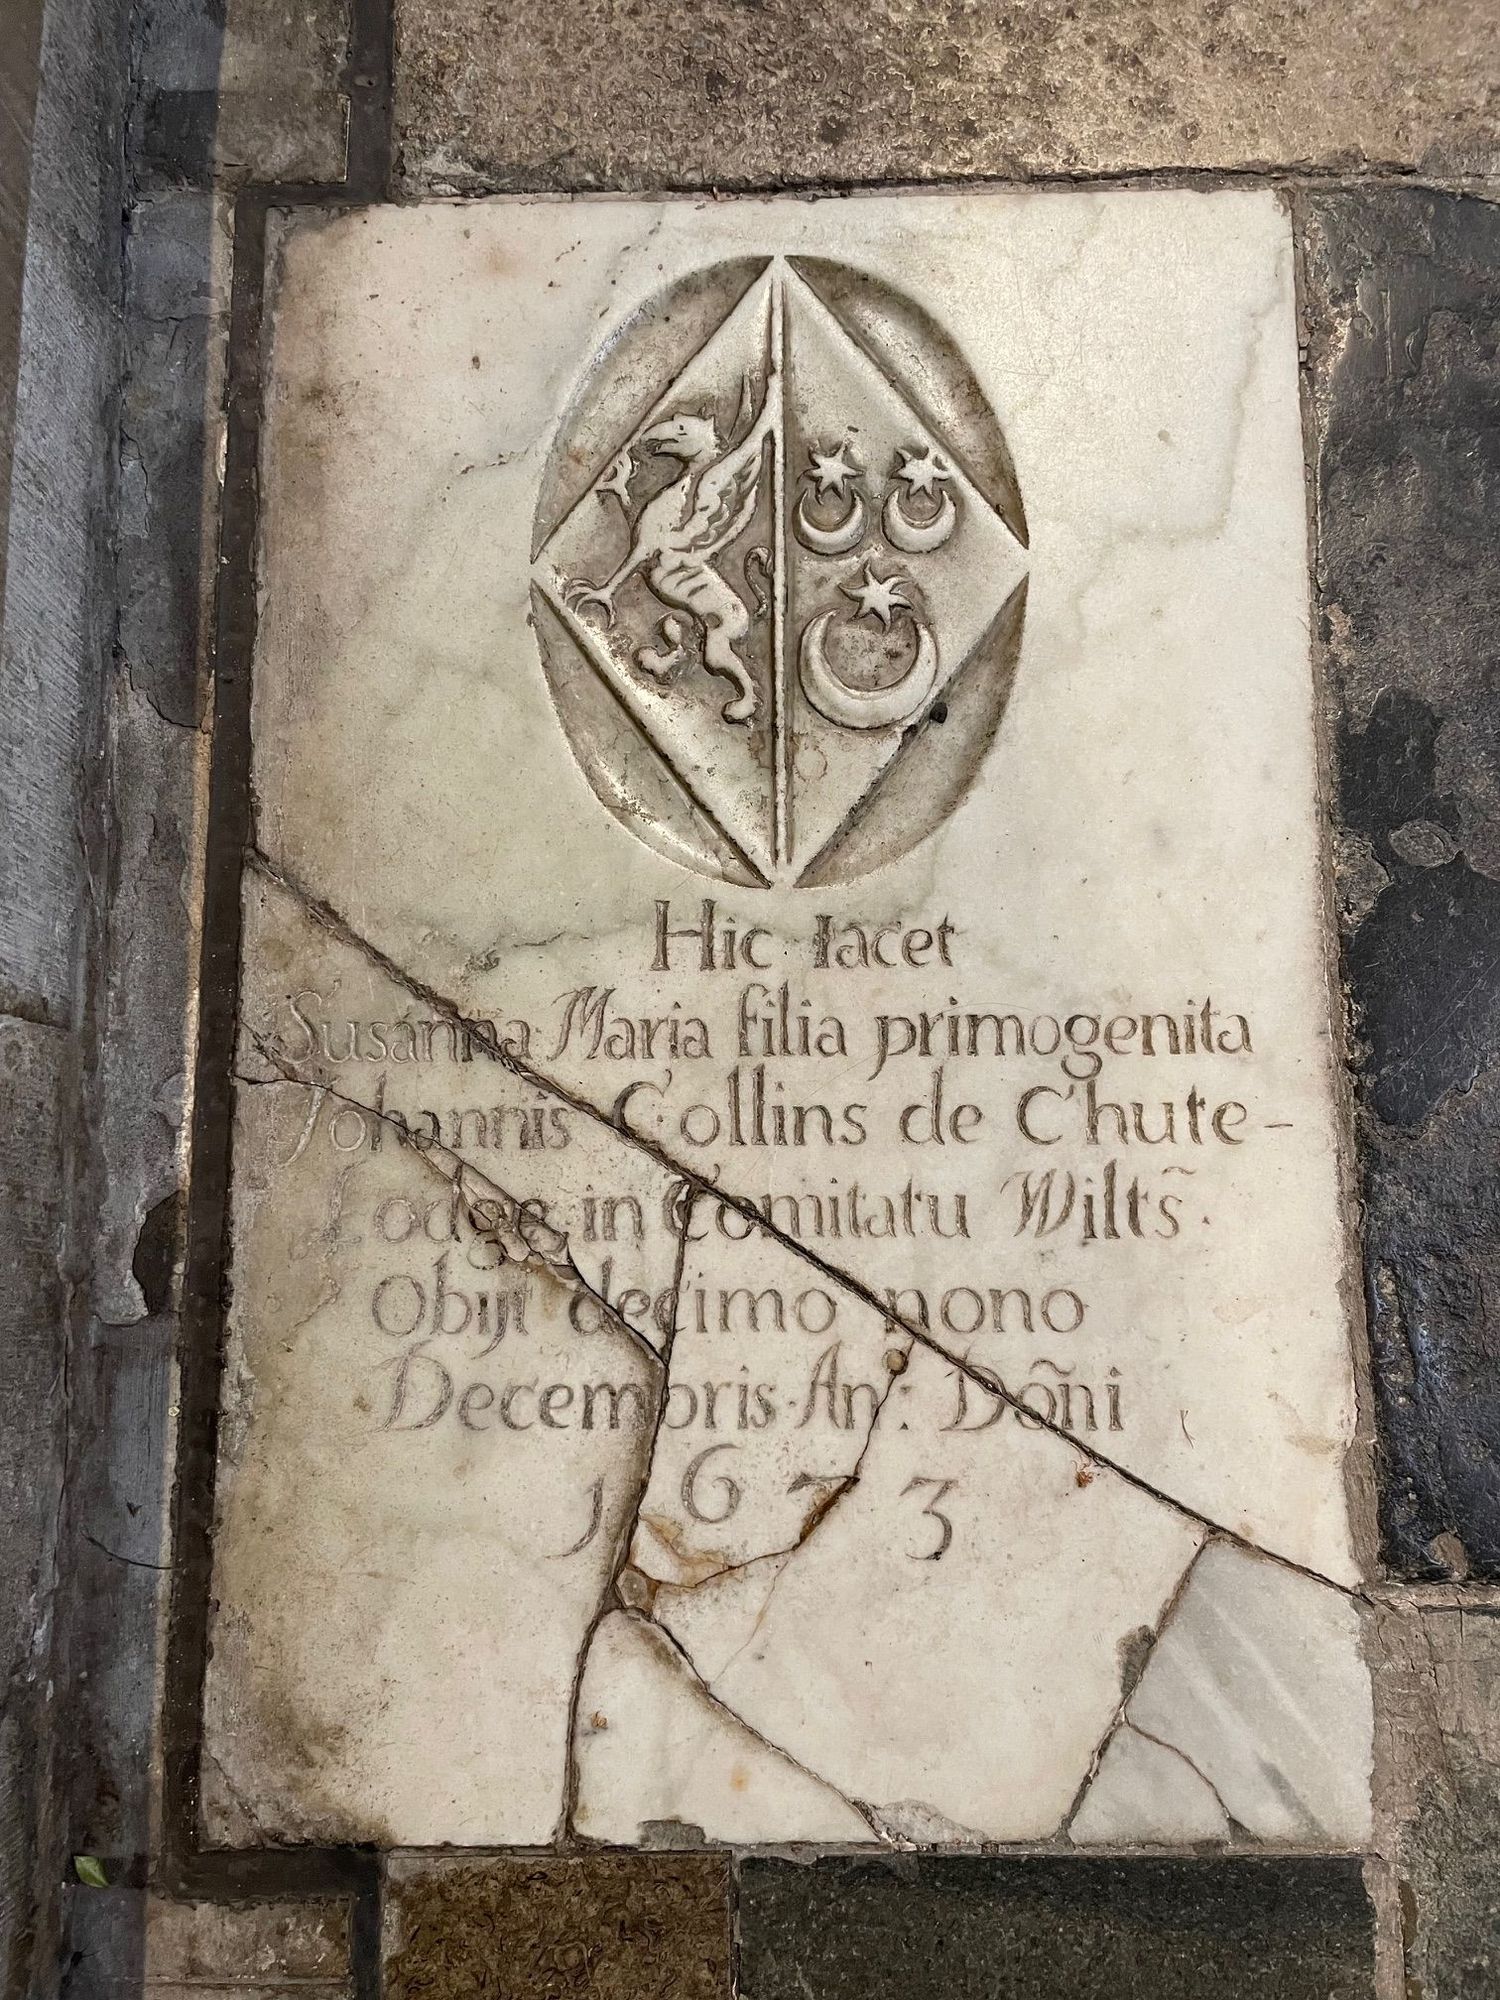 Hic Iacet
Susanna Maria filia primogenita
Johannis Collins de Chute-
Lodge in Comitatu Wilts̃.
Obijt decimo nono
Decembris An: Dõni
1673